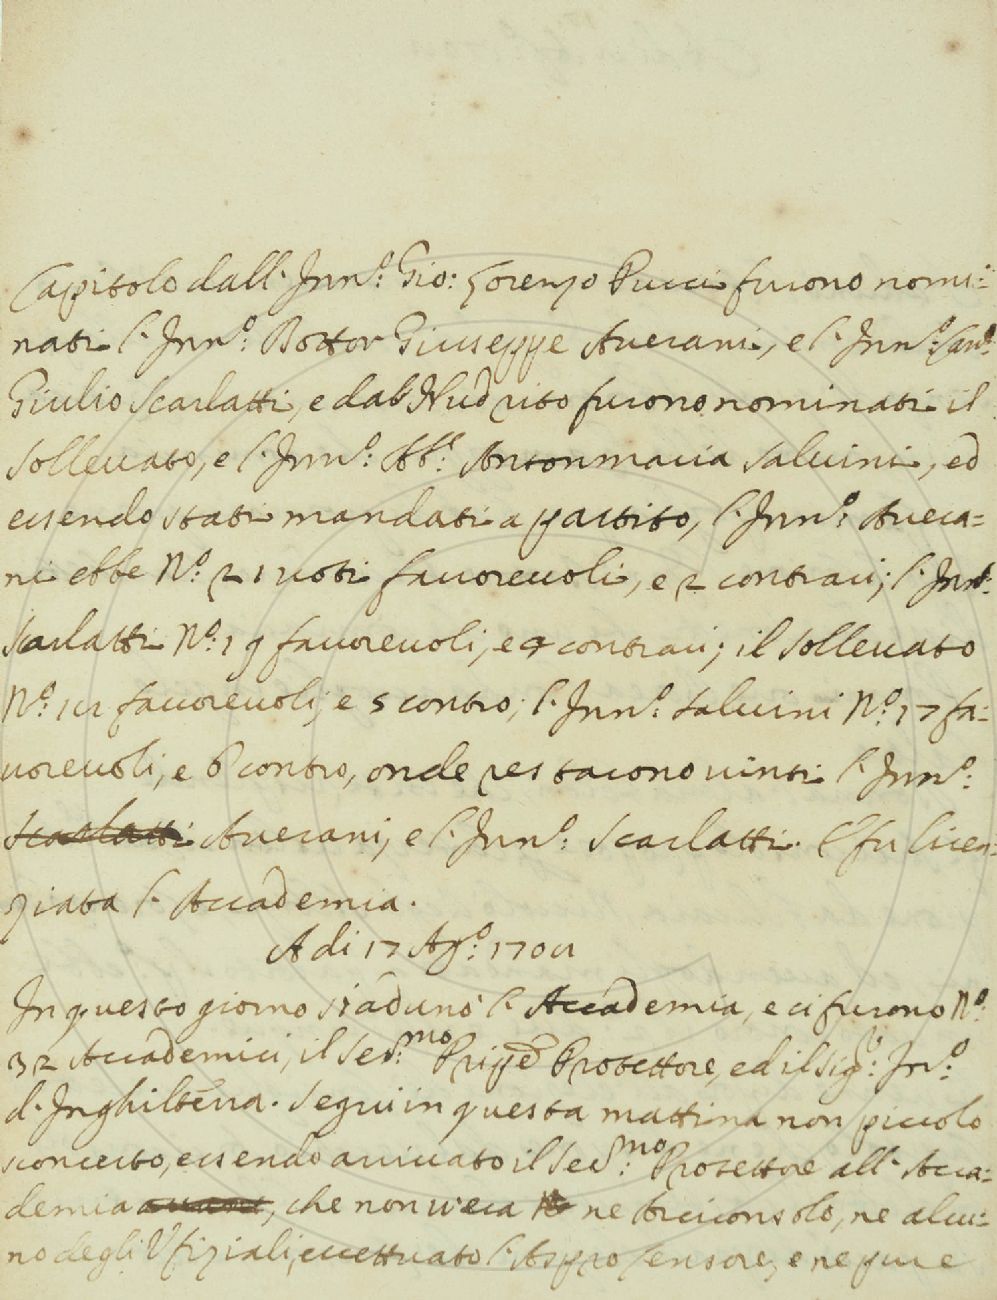 Capitolo dall' Inn.º: Gio: Lorenzo Pucci furono nomi=
nati l'Inn.º: Dottor Giuseppe Auerani, e l'Inn.º:
Giulio Scarlatti, e dal Nudrito furono nominati il
Solleuato, e l'Inn.º: Ab.e: Antonmaria Saluini, ed
essendo stati mandati a partito, l'Inn.º: Auera=
ni ebbe N.º: 21 uoti fauoreuoli, e 2 contrari; l'Inn.º:
Scarlatti N.º: 19 fauoreuoli, e 4 contrari; il Solleuato
N.º: fauoreuoli, e 5 contro; l'Inn.º: Saluini N.º: 17 fa=
uoreuoli, e 6 contro, onde restarono uinti l'Inn.º:
Scarlatti Auerani, e l'Inn.º: Scarlatti. E fu licen=
ziata l'Accademia.
A di 17 Ag.º:
In questo giorno s'adunò l'Accademia, e ci furono N.º:
32 Accademici, il Ser.mo: Prippe Protettore, ed il Sig.r: In.º
d'Inghilterra. Seguì in questa mattina non piccolo
sconcerto, essendo arriuato il Ser.mo: Protettore all'Acca=
demia, che non u'era ne Arciconsolo, ne alcu=
no degli Vfiziali, eccettuato l'Aspro Censore, e ne pure